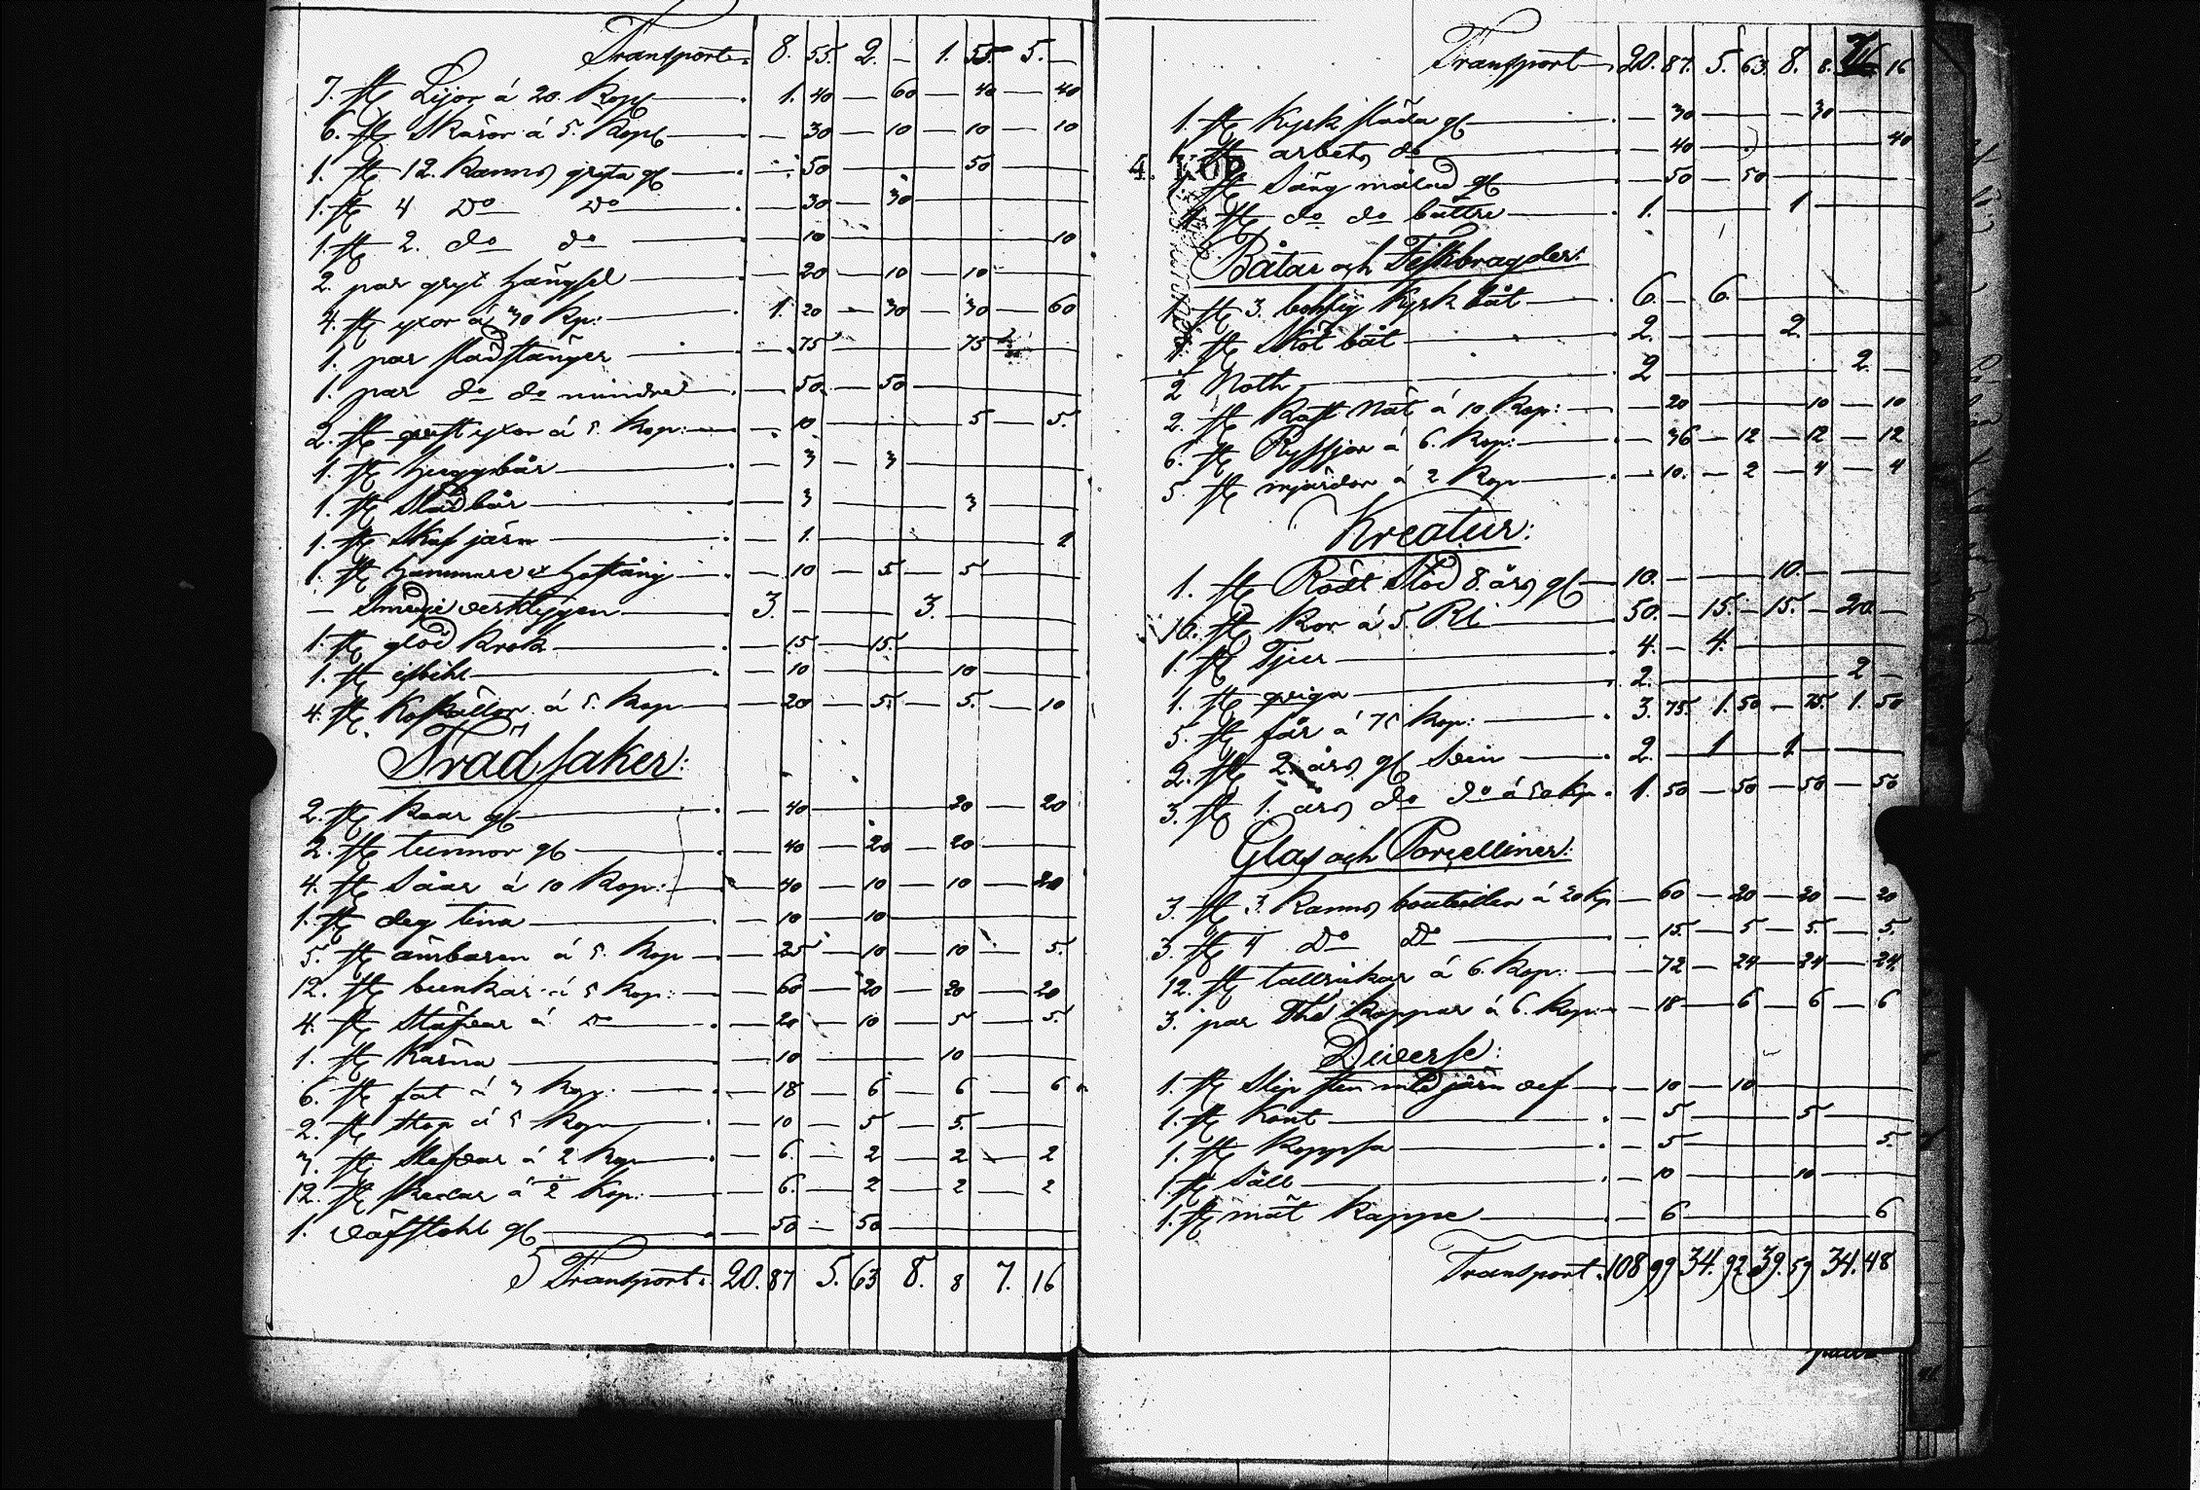 Transport. 8. 55. 2. — 1. 55 5. —
7. st Lijor á 20. Kop — 1. 40 — 60 — 40 — 40
6. st Skäror á 5. Kop — 30 — 10 — 10 — 10
1. st 12. Kanns gryta gl — 50 — 50
1. st 4 Do Do — 30 — 30
1. st 2. do do — 10 — 10
2. par gryt hängsel — 20 — 10 — 10
4. st yxor á 30 Kp: 1. 20 — 30 — 30 — 60
1. par stänger — 75 — 75
1. par do do mindre — 50 — 50
2. st yxor á 5. Kop: — 10 — 5 — 5.
1. st huggbår — 3 — 3
1. st Stådbår — 3 — 3
1. st Skaf järn — 1. — 1
1. st hammare & hoftång — 10 — 5 — 5
— Smedje verktygen — 3. — 3.
1. st glöd krok — 15 — 15.
1. st isbihl — 10 — 10
4. st Koskällor á 5. Kop — 20 — 5. — 5. — 10
Trädsaker:
2. st Kaar gl — 40 — 20 — 20
2. st tunnor gl — 40 — 20 — 20
4. st Såar á 10 Kop: — 40 — 10 — 10 — 20
1. st deg tina — 10 — 10
5. st ämbaren á 5. Kop — 25 — 10 — 10 — 5.
12. st bunkar á 5 Kop: — 60 — 20 — 20 — 20
4. st Stäfvar á Do — 20 — 10 — 5 — 5.
1. st Kärna — 10 — 10
6. st fat á 3 Kop: — 18 — 6 — 6 — 6
2. st stop á 5 Kop — 10 — 5 — 5.
3. st Slefvar á 2 Kop — 6. — 2 — 2 — 2
12. st skedar á ½ Kop: — 6. — 2 — 2 — 2
1. väfstohl gl — 50 — 50
Transport. 20. 87 5. 63 8. 8 7. 16
Transport 20. 87. 5. 63. 8. 8. 16
1. st Kyrk släda gl — 30 — 30
1. st arbets do — 40 — 40
1. st Säng målad gl — 50 — 50
1. st do do bättre — 1. — 1
Båtar och Fiskbragder:
1 st 3. bohlig Kyrk båt — 6. — 6.
1. st Sköt båt — 2. — 2.
½ Noth — 2 — 2.
2. st Nät á 10 Kop: — 20 — 10 — 10
6. st Ryssjor á 6. Kop: — 36 — 12 — 12 — 12
5. st mjärdor á 2 Kop — 10. — 2 — 4 — 4
Kreatur:
1. st Rödt Stod 8. års gl — 10. — 10.
10. st Kor á 5. Rl — 50. — 15. — 15. — 20. —
1. st Tjur — 4. — 4.
1. st qviga — 2. — 2 —
5. st får á 75 Kop: — 3. 75. 1. 50 — 75. 1. 50
2. st 2. års gl Svin — 2. — 1 — 1
3. st 1. års do do á 50 Kp. 1. 50 — 50 — 50 — 50
Glas och Porcelliner:
3. st 3. Kanns bouteiller á 20 Kp — 60 — 20 — 20 — 20
3. st 4 Do Do — 15. — 5 — 5. — 5.
12. st tallrikar á 6. Kop: — 72 — 24 — 24 — 24
3. par The Koppar á 6. Kop: — 18 — 6 — 6 — 6
Diverse:
1. st Slip sten med järn vef — 10 — 10
1. st Kont — 5 — 5
1. st Koppsa — 5 — 5.
1. st Såll — 10 — 10
1. st mät Kappe — 6 — 6
Transport. 108 99 34. 92. 39. 59 34. 48